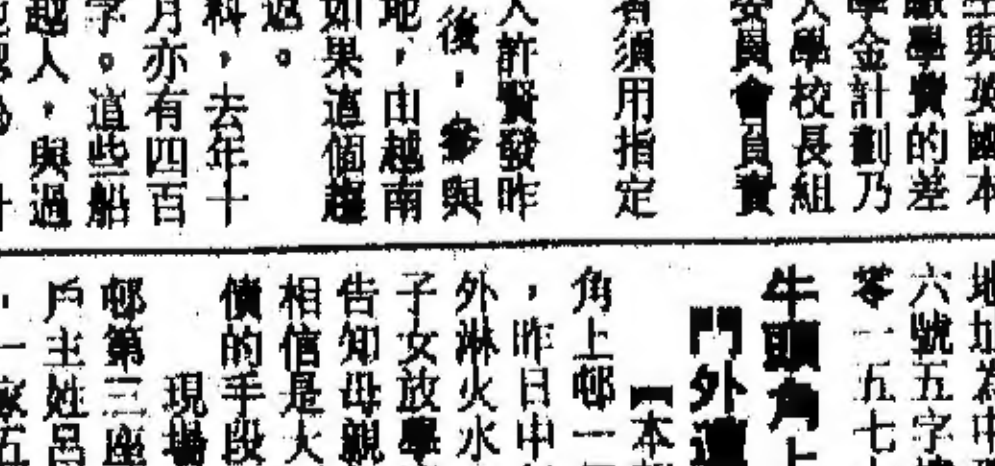 與英國本
學費的差
學金計劃乃
大學校長組
委員會負責
者須用指定
人許賢發昨
後，參與
地，由越南
如果這個趨
返。
料，去年十
月亦有四百
字。這些船
越人，與過
地址為中
六號五字
零一五七
牛頭角上
門外遭
【本
角上邨一
，昨日中
外淋火水
子女放學
告知母親
相信是大
債的手段
現場
邨第三座
戶主姓呂
，一家五